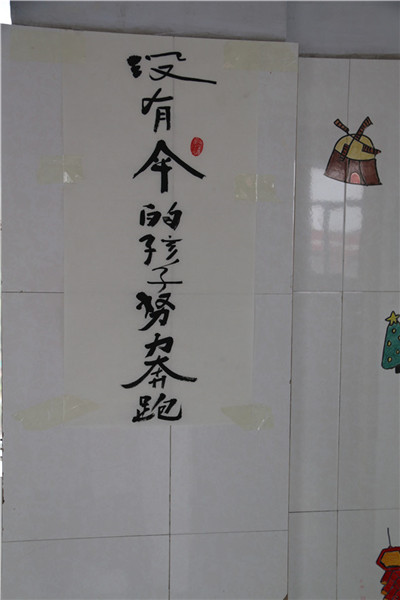 没有伞的孩子努力奔跑